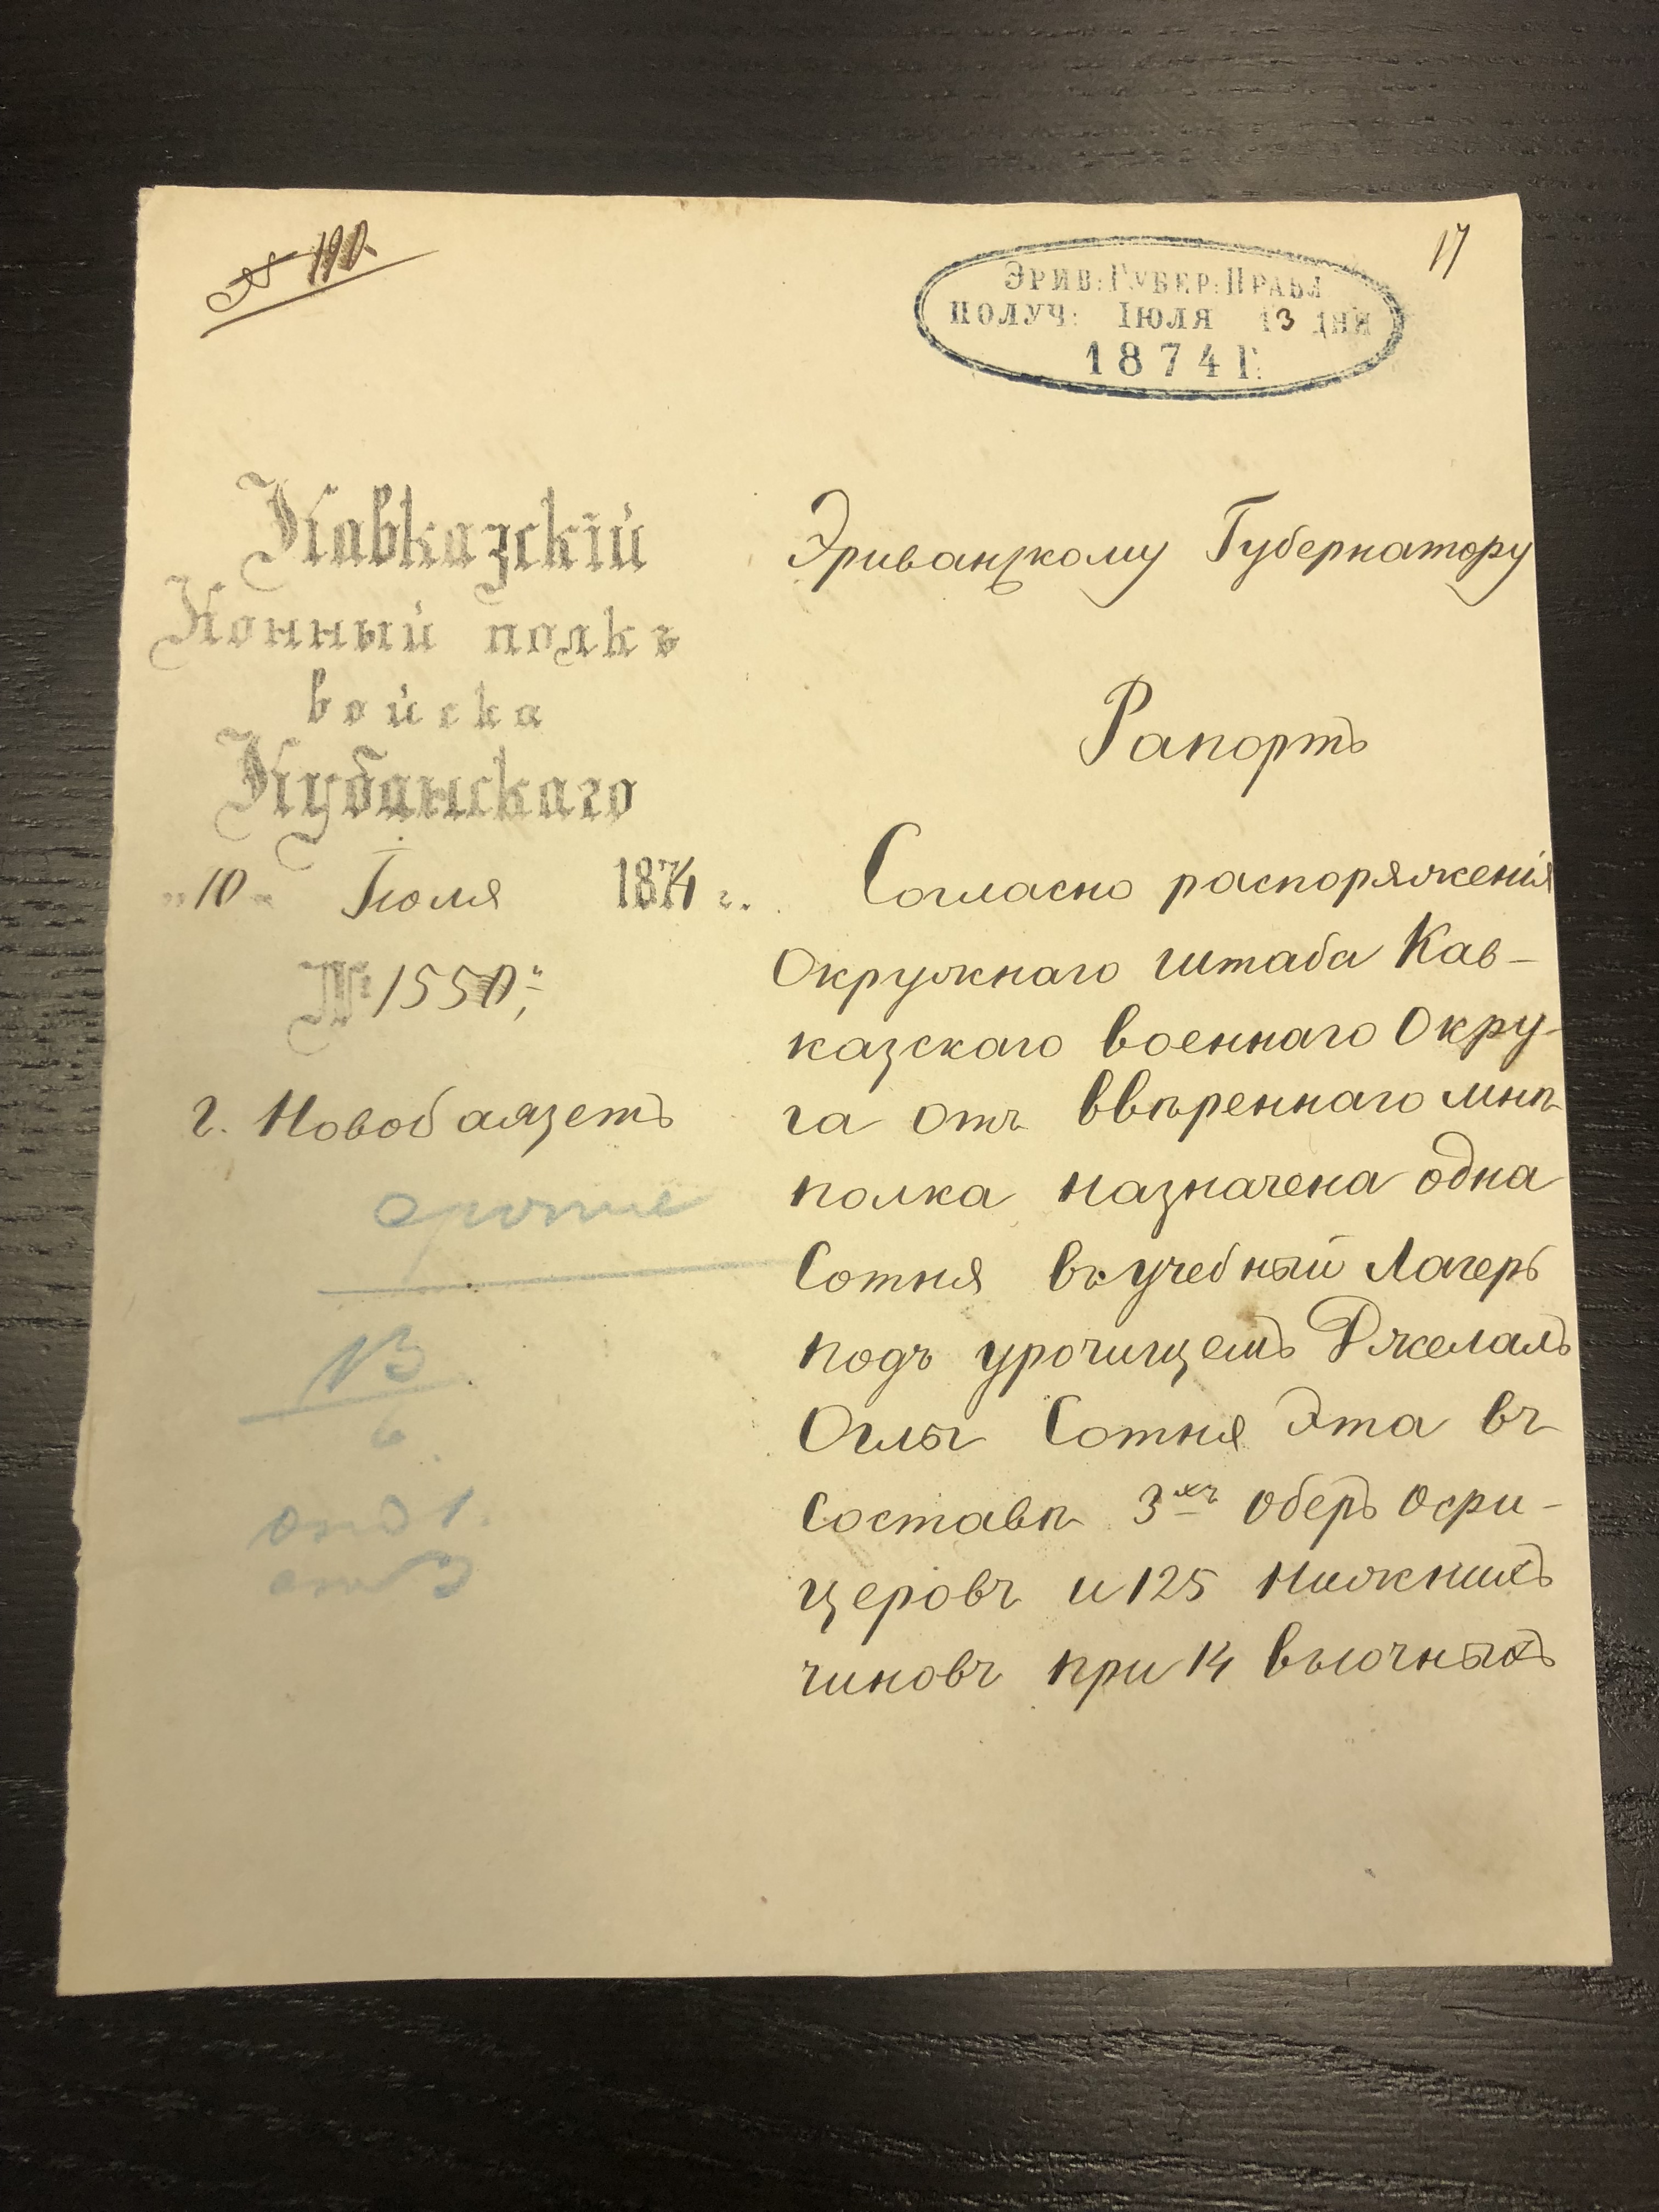 17
ЭРИВ: ГУБЕР: ПРАВЛ
ПОЛУЧ: ІЮЛЯ 13 ДНЯ
1874 Г.
Кавказскій
Конный полкъ
войска
Кубанскаго
"10" Іюля 1874 г.
№ 1550;
г. Новобаязетъ
срочные
13
6
Эриванскому Губернатору
Рапортъ
Согласно распоряженія
Окружнаго штаба Кав-
казскаго военнаго Окру-
га отъ ввѣреннаго мнѣ
полка назначена одна
Сотня въ учебный Лагерь
подъ урочищемъ Джелалъ
Оглы Сотня Эта въ
Составѣ 3хъ Оберъ Офи-
церовъ и 125 Нижнихъ
чиновъ при 14 вьючныхъ